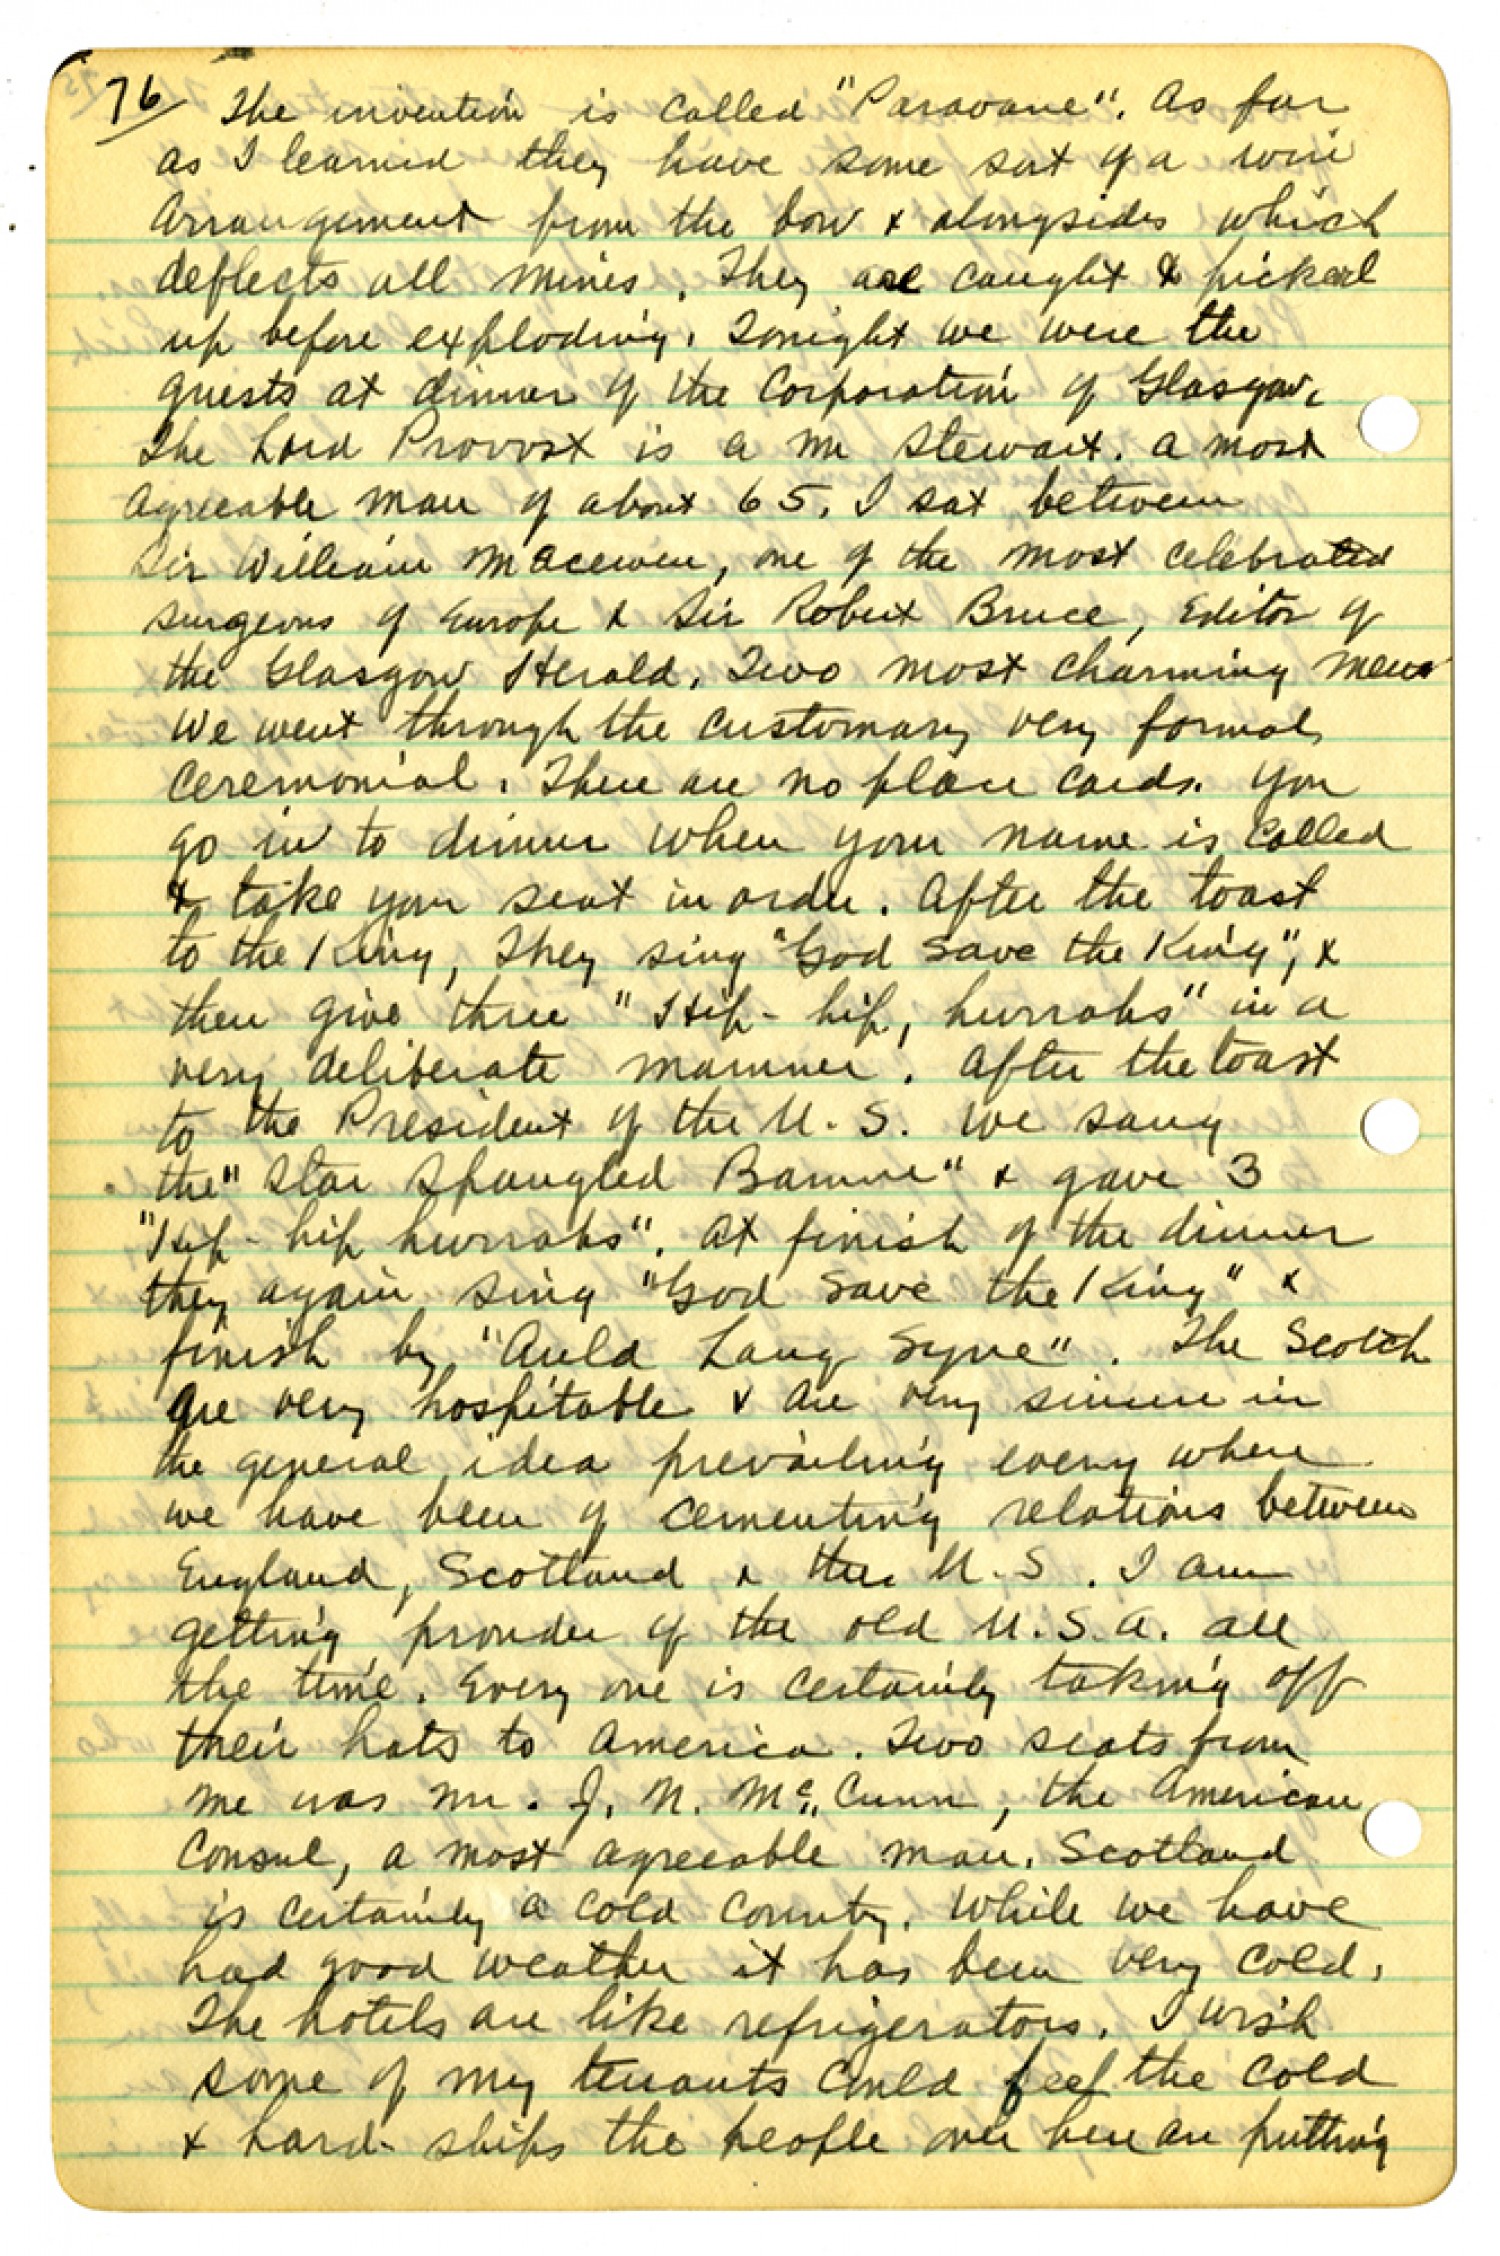 76 The invention is called "Paravane". As far
as I learned they have some sort of a wire
arrangement from the bow & alongsides which
deflects all mines. They are caught & picked
up before exploding. Tonight we were the
guests at dinner of the Corporation of Glasgow.
The Lord Provost is a Mr Stewart. a most
agreeable man of about 65. I sat between
Sir William Macewen, one of the most celebrated
surgeons of Europe & Sir Robert Bruce, Editor of
the Glasgow Herald. Two most charming men
We went through the customary very formal
ceremonial. There are no place cards. You
go in to dinner when your name is called
& take your seat in order. After the toast
to the King, they sing "God save the King", &
then give three "Hip-hip, hurrahs" in a
very deliberate manner. After the toast
to the President of the U.S. we sang
the "Star Spangled Banner" & gave 3
"Hip-hip hurrahs". At finish of the dinner
they again sing "God save the King" &
finish by "Auld Lang Syne". The Scotch
are very hospitable & are very sincere in
the general idea prevailing every where
we have been of cementing relations between
England, Scotland & the U.S. I am
getting prouder of the old U.S.A. all
the time. Every one is certainly taking off
their hats to America. Two seats from
me was Mr. J. N. McCunn, the American
Consul, a most agreeable man. Scotland
is certainly a cold country. While we have
had good weather it has been very cold.
The hotels are like refrigerators. I wish
some of my tenants could feel the cold
& hard-ships the people over here are putting